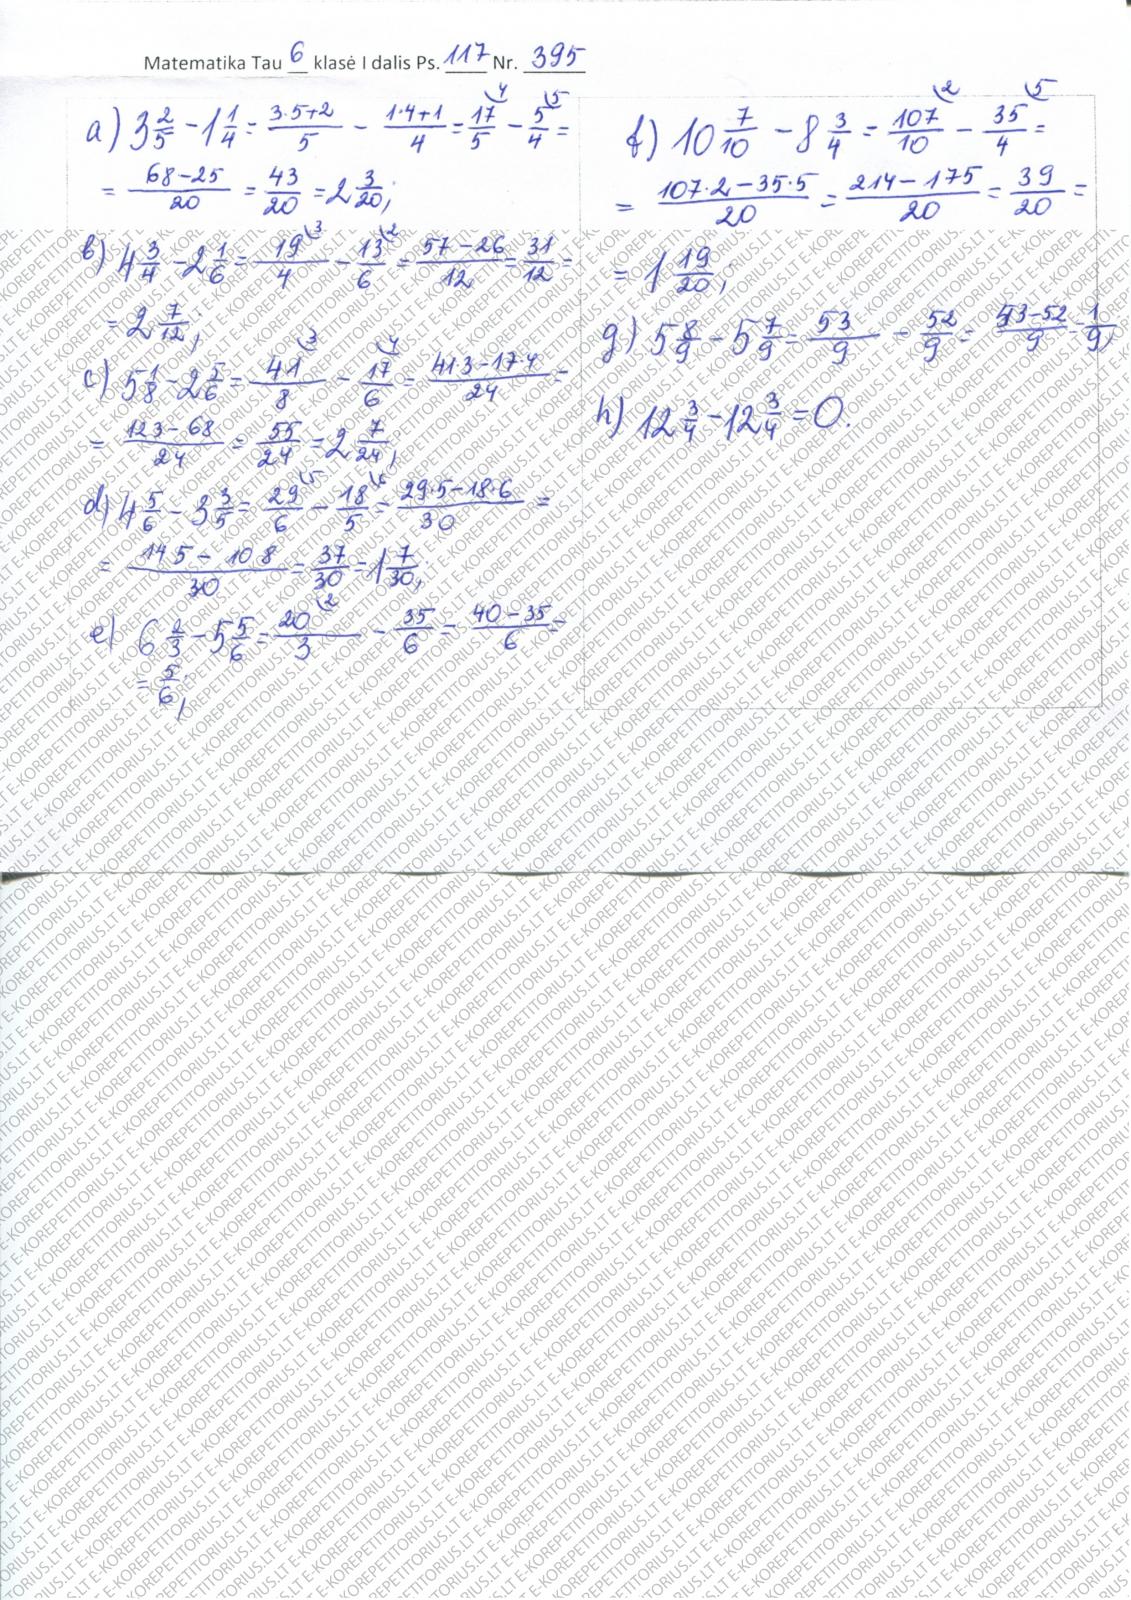 Matematika Tau 6 klasė I dalis Ps. 117 Nr. 395
a) 3 2/5 - 1 1/4 = (3·5+2)/5 - (1·4+1)/4 = 17/5 \4 - 5/4 \5 =
= (68-25)/20 = 43/20 = 2 3/20;
b) 4 3/4 - 2 1/6 = 19/4 \3 - 13/6 \2 = (57-26)/12 = 31/12 =
= 2 7/12;
c) 5 1/8 - 2 5/6 = 41/8 \3 - 17/6 \4 = (41·3-17·4)/24 =
= (123-68)/24 = 55/24 = 2 7/24;
d) 4 5/6 - 3 3/5 = 29/6 \5 - 18/5 \6 = (29·5-18·6)/30 =
= (145-108)/30 = 37/30 = 1 7/30;
e) 6 2/3 - 5 5/6 = 20/3 \2 - 35/6 = (40-35)/6 =
= 5/6;
f) 10 7/10 - 8 3/4 = 107/10 \2 - 35/4 \5 =
= (107·2-35·5)/20 = (214-175)/20 = 39/20 =
= 1 19/20;
g) 5 8/9 - 5 7/9 = 53/9 - 52/9 = (53-52)/9 = 1/9;
h) 12 3/4 - 12 3/4 = 0.
E-KOREPETITORIUS.LT